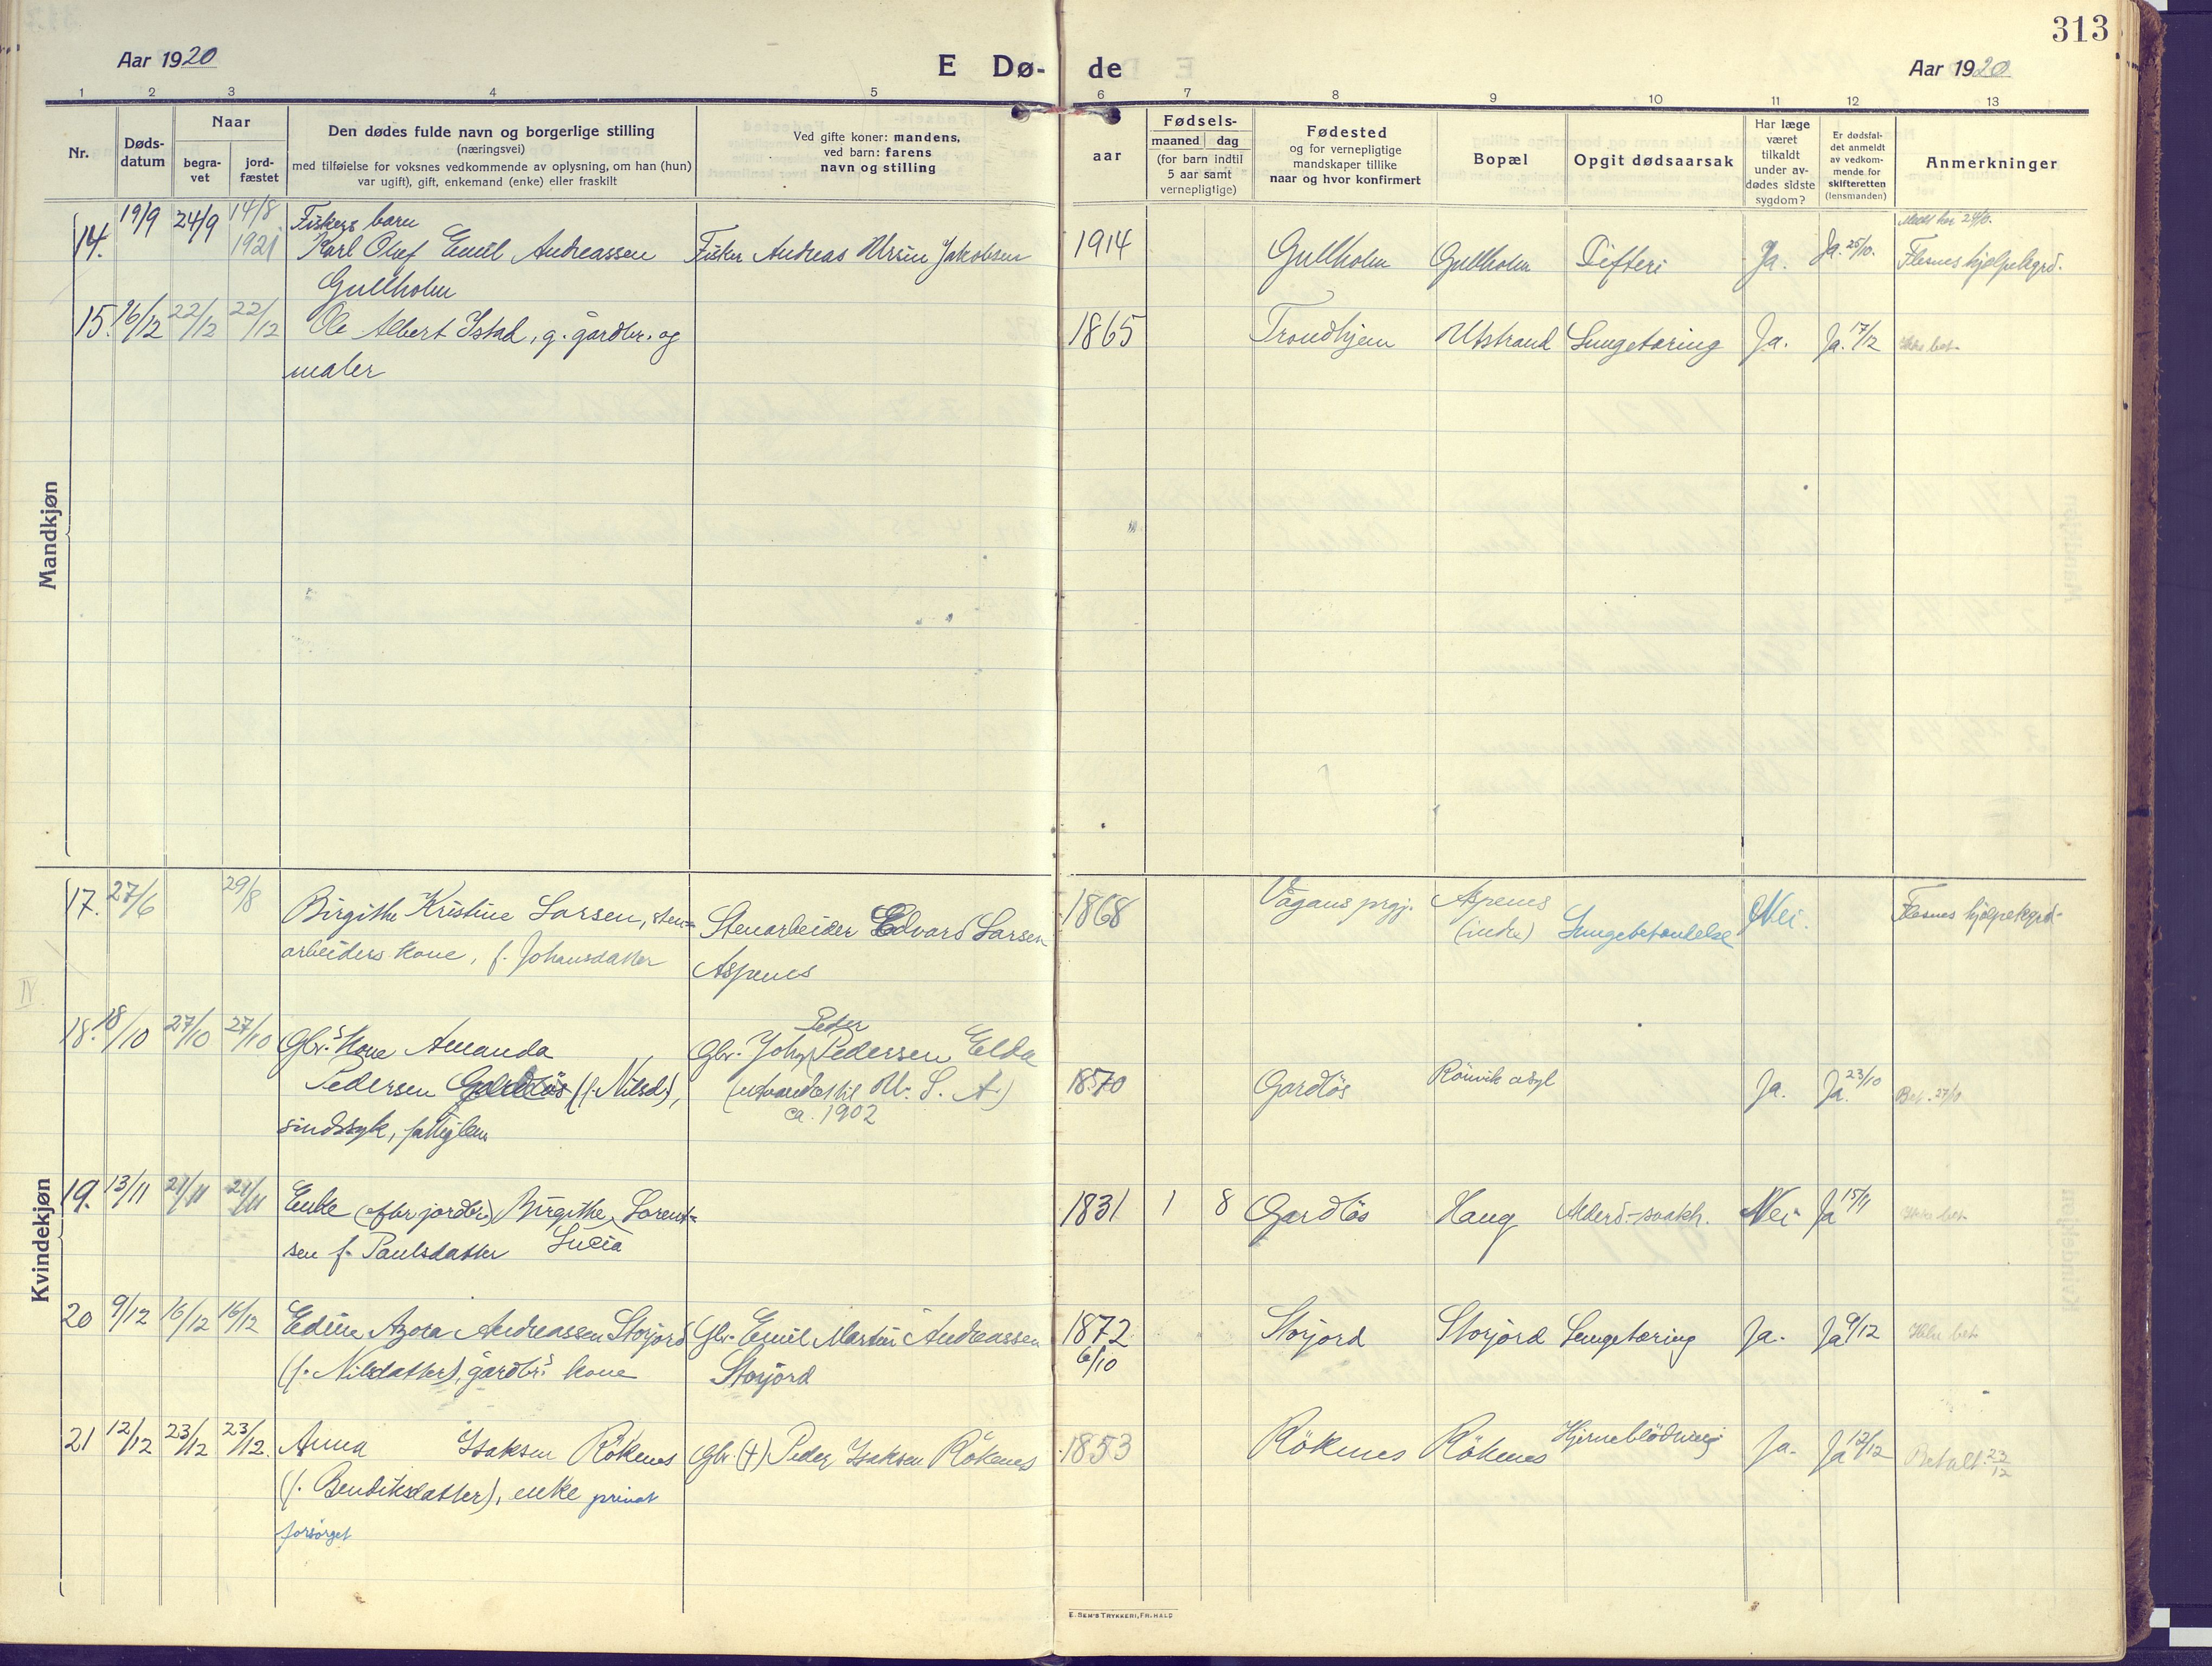 313
Aar 1920
E Dø-
de
Aar 1920
1 2 3 4 5 6 7 8 9 10 11 12 13
Nr.
Døds-
datum
Naar
begra-
vet
jord-
fæstet
Den dødes fulde navn og borgerlige stilling
(næringsvei)
med tilføielse for voksnes vedkommende av oplysning, om han (hun)
var ugift), gift, enkemand (enke) eller fraskilt
Ved gifte koner: mandens,
ved barn: farens
navn og stilling
Fødsels-
aar
maaned dag
(for barn indtil
5 aar samt
vernepligtige)
Fødested
og for vernepligtige
mandskaper tillike
naar og hvor konfirmert
Bopæl
Opgit dødsaarsak
Har læge
været
tilkaldt
under av-
dødes sidste
sygdom?
Er dødsfal-
det anmeldt
av vedkom-
mende for
skifteretten
(lensmanden)
Anmerkninger
Mandkjøn
14. 19/9 24/9 14/8 Fiskers barn
1921 Karl Oluf Emil Andreassen Fisker Andreas Ursin Jakobsen 1914 Gullholm Gullholm Difteri Ja. Ja. 25/10. Flesnes hjelpekgrd.
Gullholm
15. 16/12 22/12 22/12 Ole Albert Istad, g. gardbr. og 1865 Trondhjem Utstrand Lungetæring Ja. Ja. 17/12 Ikke bet.
maler
Kvindekjøn
17. 27/6 29/8 Birgithe Kristine Larsen, sten= Stenarbeider Edvard Larsen 1868 Vågans prgj. Aspenes Nei. Flesnes hjelpekgrd.
arbeiders kone, f. Johansdatter Aspenes (indre) Lungebetændelse
18. 18/10 27/10 27/10 Gbr.s kone Amanda Gbr. Johan Peder Pedersen Elda
Pedersen Gardløs (f. Nilsd.), (utvandret til U. S. A.) 1870 Gardlös Rönvik asyl Ja. Ja. 23/10 Bet. 27/10
sindssyk, fattiglem ca. 1902
19. 13/11 21/11 21/11 Enke (efter jordbr.) Birgithe Lorent= 1831 1 8 Gardlös Haug Alderd.-svakh. Nei Ja 15/11 Ikke bet.
sen f. Paulsdatter Lucia
20 9/12 16/12 16/12 Edine Azora Andreassen Storjord Gbr. Emil Martin Andreassen 1872 Storjord Storjord Lungetæring Ja. Ja 9/12 Ikke bet.
(f. Nilsdatter), gardbr.s kone Storjord 6/10
21 12/12 23/12 23/12. Anna Isaksen Rökenes Gbr. (†) Peder Isaksen Rökenes 1853 Rökenes Rökenes Hjerneblödning Ja. Ja 12/12 Betalt 23/12
(f. Bendiksdatter), enke privat
forsörget
E. SEM'S TRYKKERI, FR.HALD